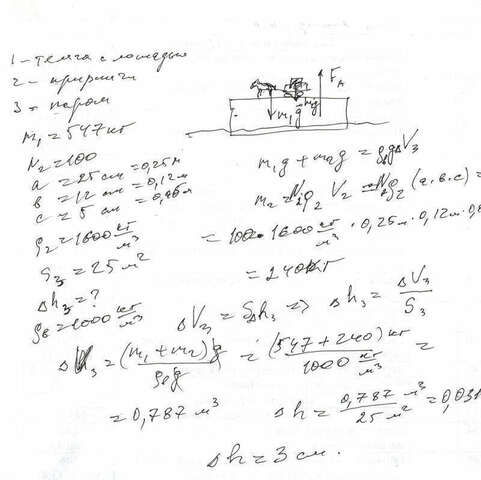 1 - телега с лошадью
2 - кирпичи
3 - паром
m₁ = 547 кг
N₂ = 100
a = 25 см = 0,25 м
b = 12 см = 0,12 м
c = 5 см = 0,05 м
ρ₂ = 1600 кг/м³
S₃ = 25 м²
Δh₃ = ?
ρв = 1000 кг/м³
F_A
m₁g mg
m₁g + m₂g = ρвgΔV₃
m₂ = N₂ρ₂V₂ = N₂ρ₂(a·b·c) =
= 100 · 1600 кг/м³ · 0,25 м · 0,12 м · 0,0
= 240 кг
ΔV₃ = SΔh₃ => Δh₃ = ΔV₃/S₃
ΔV₃ = (m₁ + m₂)g/ρвg = (547 + 240) кг/1000 кг/м³ =
= 0,787 м³
Δh = 0,787 м³/25 м² = 0,031
Δh = 3 см.